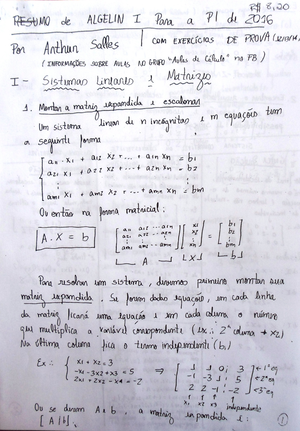 R$ 3,20
RESUMO de ALGELIN I Para a P1 de 2016
Por Arthur Salles | COM EXERCÍCIOS DE PROVA
(INFORMAÇÕES SOBRE AULAS NO GRUPO "Aulas de Cálculo" no FB)
I - Sistemas Lineares e Matrizes
1. Montar a matriz expandida e escalonar
Um sistema linear de n incognitas e m equações tem
a seguinte forma
a11 x1 + a12 x2 + ... + a1n xn = b1
a21 x1 + a22 x2 + ... + a2n xn = b2
⋮
am1 x1 + am2 x2 + ... + amn xn = bm
Ou então na forma matricial:
A.X = b
[a11 a12 ... a1n] [x1] = [b1]
[a21 a22 ... a2n] [x2] [b2]
[am1 am2 ... amn] [xn] [bm]
A X b
Para resolver um sistema, devemos primeiro montar sua
matriz expandida. Se foram dadas equações, em cada linha
da matriz ficará uma equação e em cada coluna o número
que multiplica a variável correspondente (Ex.: 2ª coluna → x2)
Na última coluna fica o termo independente (b)
Ex: x1 + x2 = 3
-x1 - 3x2 + x3 = 5
2x1 + 2x2 - x4 = -2
⇒
1 1 0 ; 3 ← 1ª eq
-1 -3 1 ; 5 ← 2ª eq
2 2 -1 ; -2 ← 3ª eq
x1 x2 x3 independente
Ou se deram A e b, a matriz expandida é:
[A|b].
1